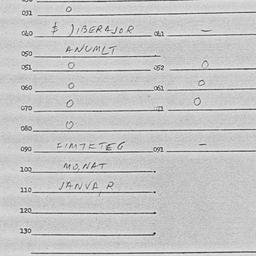 031 0
040 $ JIBERAJOR 041 -
050 ANUMLT
051 0 052 0
060 0 061 0
070 0 0
080 0
090 FIMTETEG 091 -
100 MO,NAT
110 JANVA,R
120
130